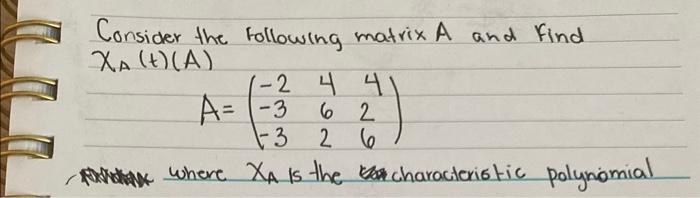 Consider the following matrix A and find
χA (t)(A)
A= (-2 4 4
-3 6 2
-3 2 6)
where χA is the characteristic polynomial